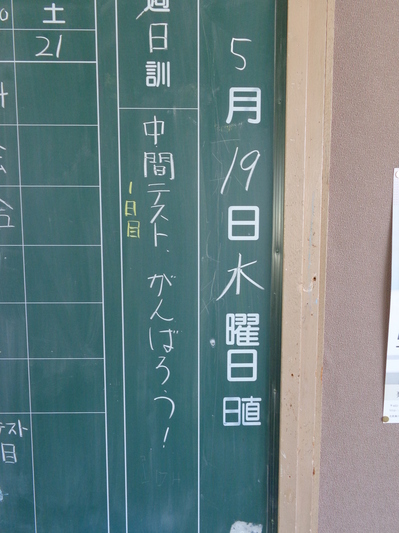 5月19日木曜日
日直
週日訓
中間テスト、がんばろう!
1日目
土
21
テスト
目